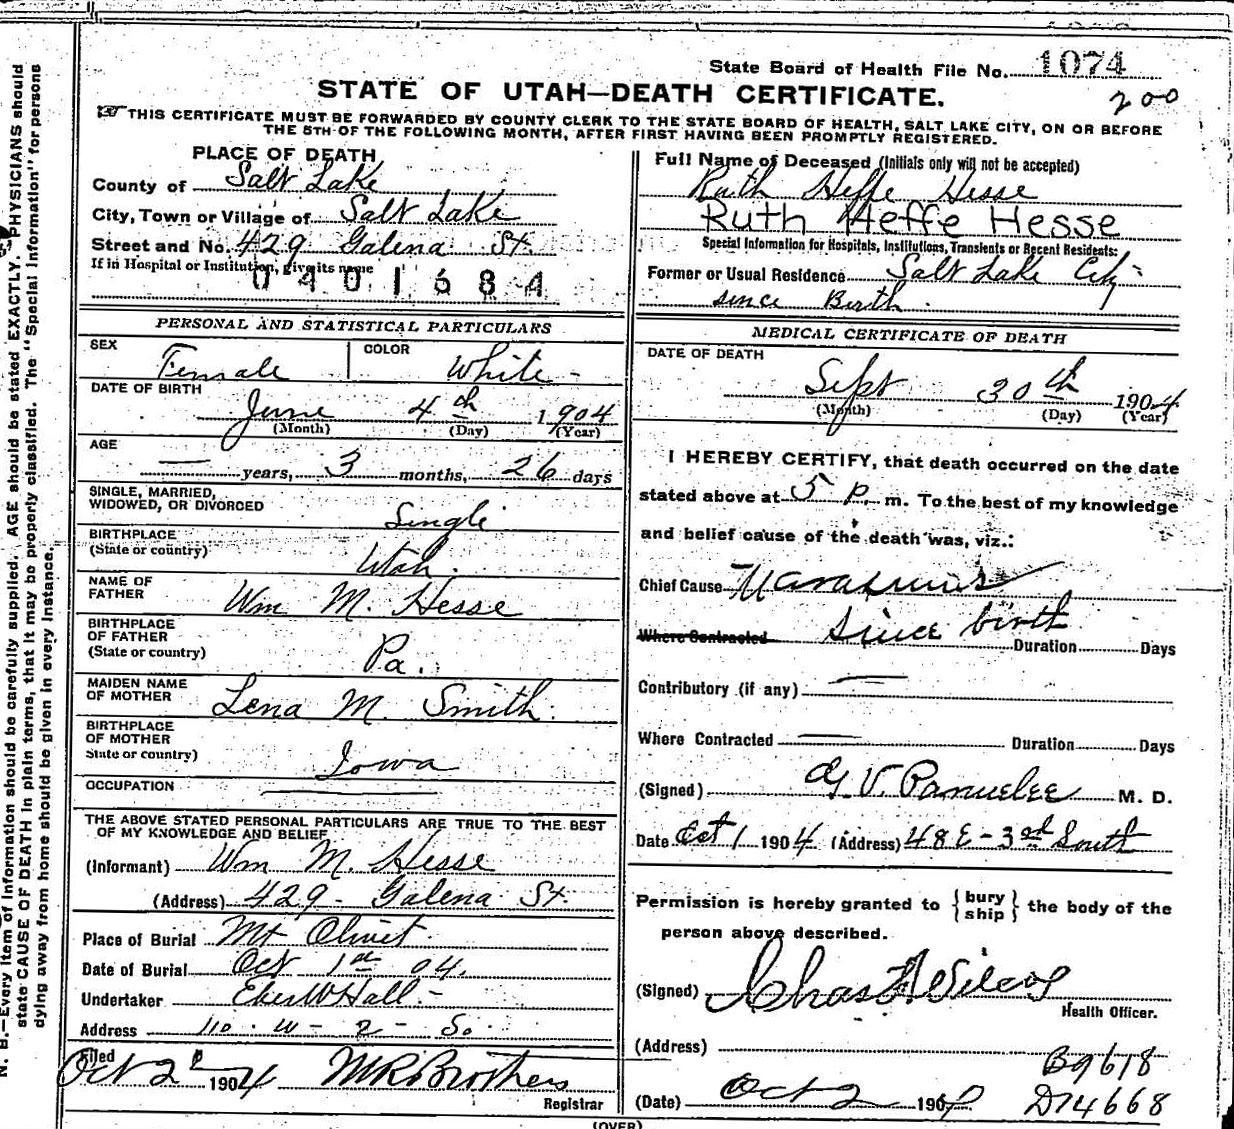 State Board of Health File No. 1074
STATE OF UTAH—DEATH CERTIFICATE.
200
☞ THIS CERTIFICATE MUST BE FORWARDED BY COUNTY CLERK TO THE STATE BOARD OF HEALTH, SALT LAKE CITY, ON OR BEFORE
THE 5TH OF THE FOLLOWING MONTH, AFTER FIRST HAVING BEEN PROMPTLY REGISTERED.
PLACE OF DEATH
County of Salt Lake
City, Town or Village of Salt Lake
Street and No. 429 Galena St.
If in Hospital or Institution, give its name
0401684
PERSONAL AND STATISTICAL PARTICULARS
SEX Female COLOR White
DATE OF BIRTH
June 4th 1904
(Month) (Day) (Year)
AGE
— years, 3 months, 26 days
SINGLE, MARRIED,
WIDOWED, OR DIVORCED Single
BIRTHPLACE
(State or country) Utah.
NAME OF
FATHER Wm M. Hesse
BIRTHPLACE
OF FATHER
(State or country) Pa.
MAIDEN NAME
OF MOTHER Lena M. Smith.
BIRTHPLACE
OF MOTHER
State or country) Iowa
OCCUPATION —
THE ABOVE STATED PERSONAL PARTICULARS ARE TRUE TO THE BEST
OF MY KNOWLEDGE AND BELIEF
(Informant) Wm M. Hesse
(Address) 429 Galena St.
Place of Burial Mt Olivet
Date of Burial Oct 1st 04.
Undertaker Eber W Hall
Address 110 W - 2 - So.
Filed
Oct 2 1904 M R Brothers
Registrar
Full Name of Deceased (Initials only will not be accepted)
Ruth Heffe Hesse
Ruth Heffe Hesse
Special Information for Hospitals, Institutions, Transients or Recent Residents:
Former or Usual Residence Salt Lake City
since Birth.
MEDICAL CERTIFICATE OF DEATH
DATE OF DEATH
Sept 30th 1904
(Month) (Day) (Year)
I HEREBY CERTIFY, that death occurred on the date
stated above at 5 p. m. To the best of my knowledge
and belief cause of the death was, viz.:
Chief Cause Marasmus
Where Contracted since birth Duration Days
Contributory (if any) —
Where Contracted — Duration Days
(Signed) M. D.
Date Oct 1 1904 (Address) 48 E - 3rd South
Permission is hereby granted to {bury
ship} the body of the
person above described.
(Signed) Chas
Health Officer.
(Address)
B9618
(Date) Oct 2 190 D14668
(OVER)
N. B.—Every item of information should be carefully supplied. AGE should be stated EXACTLY. PHYSICIANS should
state CAUSE OF DEATH in plain terms, that it may be properly classified. The "Special Information" for persons
dying away from home should be given in every instance.